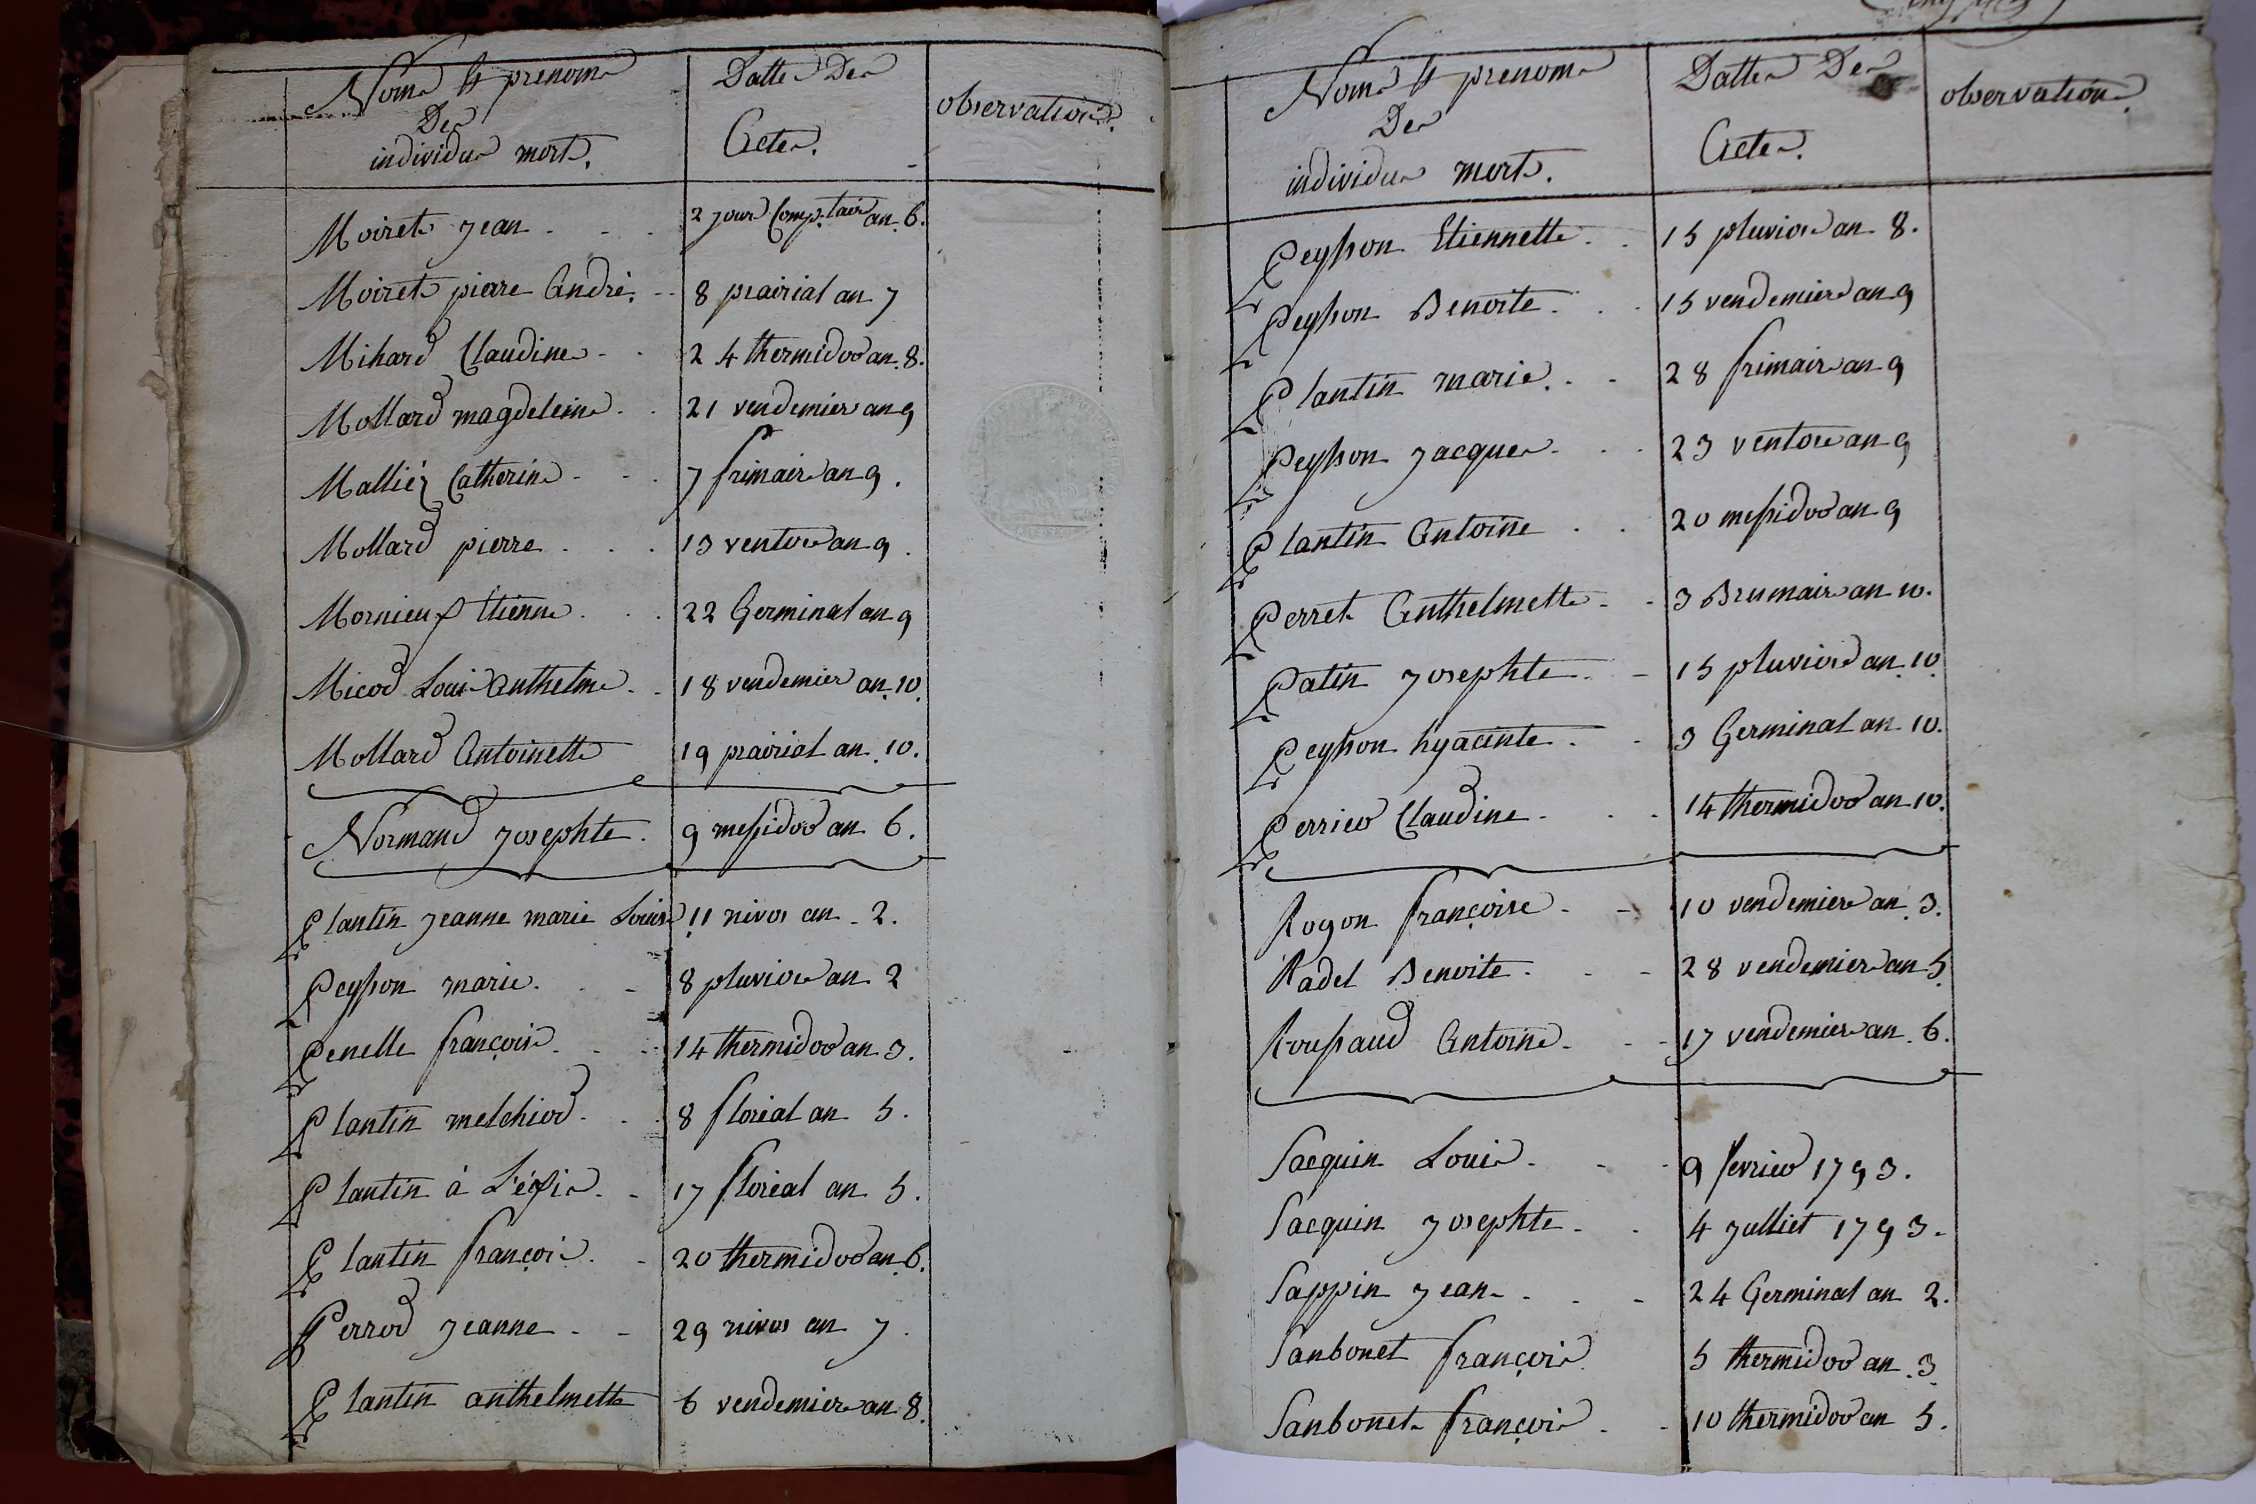 Noms & prenoms Dattes Des observations.
Des
individus morts. Actes.
Moiret jean - - - 2 jour Comp.taire an 6.
Moiret pierre André. -- 8 prairial an 7
Mihard Claudine - - 24 thermidor an 8.
Mollard magdeleine - - 21 vendemiere an 9
Malliéz Catherine - - - 7 frimaire an 9.
Mollard pierre - - - 13 ventose an 9.
Mornieux Etienne - - - 22 Germinal an 9
Micod Louis Anthelme - - 18 vendemiere an 10.
Mollard Antoinette 19 prairial an 10.
Normand josephte. 9 messidor an 6.
Plantin jeanne marie Louise 11 nivos an - 2.
Peysson marie. - - 8 pluviose an 2
Penelle françoise - - - 14 thermidor an 3.
Plantin melchior - - - 8 floréal an 5.
Plantin à L'égise - - 17 floréal an 5.
Plantin françois - - 20 thermidor an 6.
Perrod jeanne - - 29 nivos an 7.
Plantin anthelmette 6 vendemiere an 8.
Noms & prenoms Dattes Des observations.
Des
individus morts. Actes.
Peysson Etiennette - - 15 pluviose an 8.
Peysson Benoite - - - 15 vendemiere an 9
Plantin marie. - - 28 frimaire an 9
Peysson jacques - - - 23 ventose an 9
Plantin Antoine - - 20 messidor an 9
Perret Anthelmette - - 3 Brumaire an 10.
Patin josephte - - 15 pluviose an 10.
Peysson hyacinte - - 3 Germinal an 10.
Perrier Claudine - - - 14 thermidor an 10.
Rogon françoise - - 10 vendemiere an 3.
Radel Benoite - - - 28 vendemiere an 5.
Roussaud Antoine - - - 17 vendemiere an 6.
Sacquin Louis - - - 9 fevrier 1793.
Sacquin josephte - - 4 julliet 1793.
Sappin jean - - - 24 Germinal an 2.
Sanbonet françois 5 thermidor an 3.
Sanbonet françois - - 10 thermidor an 5.